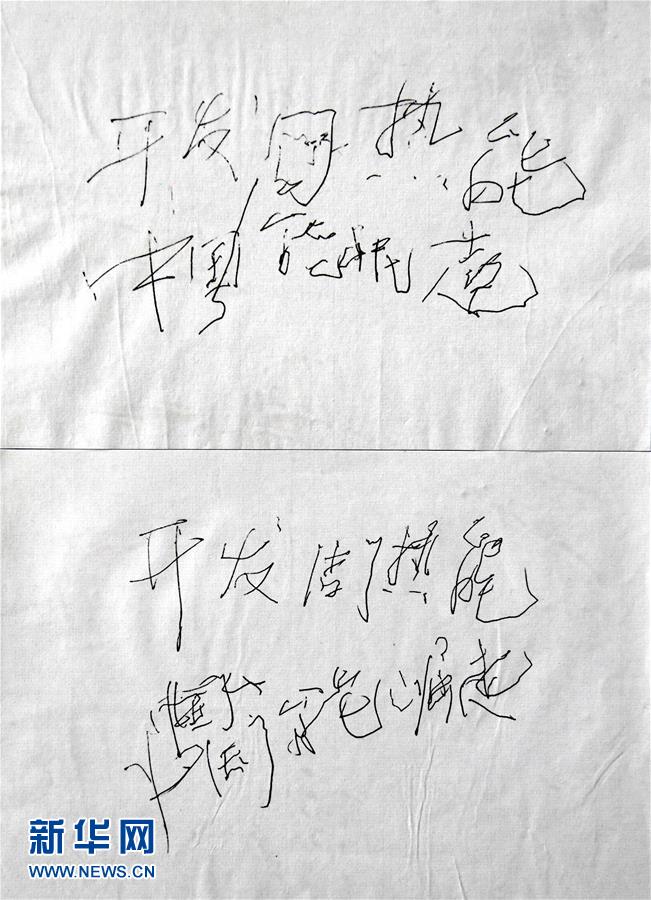 开发固热能
中国能崛起
开发固热能
能崛起
新华网
WWW.NEWS.CN